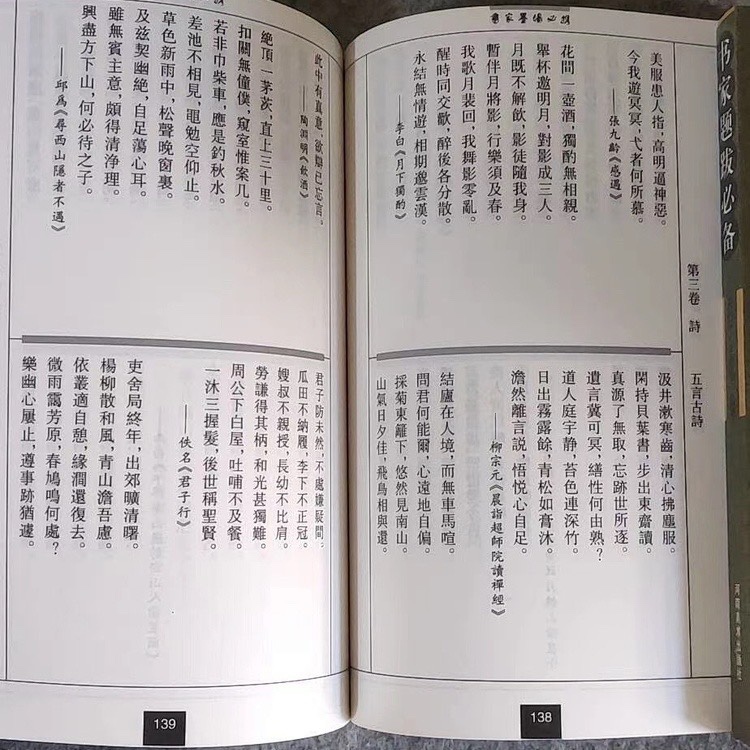 書家題跋必備
美服患人指，高明逼神惡。
今我遊冥冥，弋者何所慕。
——張九齡《感遇》
花間一壺酒，獨酌無相親。
舉杯邀明月，對影成三人。
月既不解飲，影徒隨我身。
暫伴月將影，行樂須及春。
我歌月裴回，我舞影零亂。
醒時同交歡，醉後各分散。
永結無情遊，相期邈雲漢。
——李白《月下獨酌》
第三卷 詩 五言古詩
汲井漱寒齒，清心拂塵服。
閑持貝葉書，步出東齋讀。
真源了無取，忘跡世所逐。
遺言冀可冥，繕性何由熟？
道人庭宇静，苔色連深竹。
日出霧露餘，青松如膏沐。
澹然離言說，悟悦心自足。
——柳宗元《晨詣超師院讀禪經》
結廬在人境，而無車馬喧。
問君何能爾，心遠地自偏。
採菊東籬下，悠然見南山。
山氣日夕佳，飛鳥相與還。
138
此中有真意，欲辯已忘言。
——陶淵明《飲酒》
絶頂一茅茨，直上三十里。
扣關無僮僕，窺室惟案几。
若非巾柴車，應是釣秋水。
差池不相見，黽勉空仰止。
草色新雨中，松聲晚窗裏。
及玆契幽絶，自足蕩心耳。
雖無賓主意，頗得清浄理。
興盡方下山，何必待之子。
——邱爲《尋西山隱者不遇》
君子防未然，不處嫌疑間。
瓜田不納履，李下不正冠。
嫂叔不親授，長幼不比肩。
勞謙得其柄，和光甚獨難。
周公下白屋，吐哺不及餐。
一沐三握髮，後世稱聖賢。
——佚名《君子行》
吏舍局終年，出郊曠清曙。
楊柳散和風，青山澹吾慮。
依叢適自憩，緣澗還復去。
微雨靄芳原，春鳩鳴何處？
樂幽心屢止，遵事跡猶遽。
139
书家题跋必备
河南美术出版社